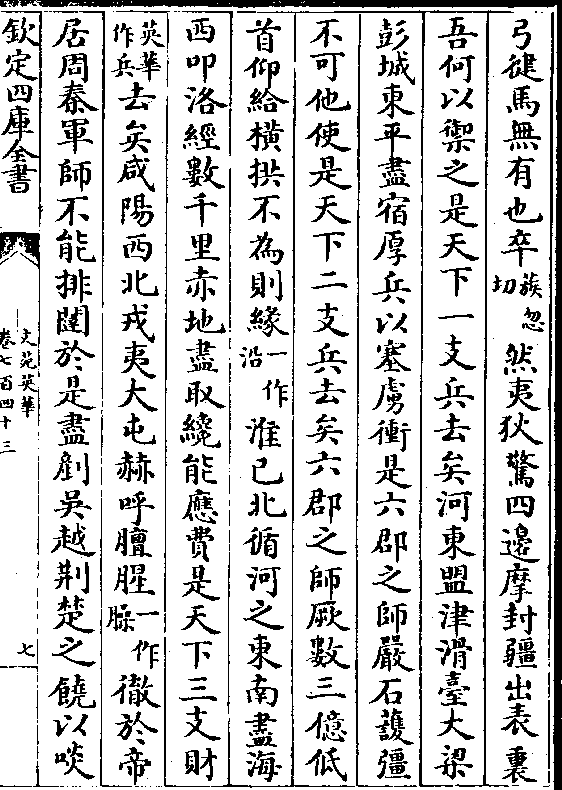 弓健馬無有也卒族忽切然夷狄驚四邊摩封疆出表裏
吾何以禦之是天下一支兵去矣河東盟津滑臺大梁
彭城東平盡宿厚兵以塞虜衝是六郡之師嚴石䕶彊
不可他使是天下二支兵去矣六郡之師厥數三億低
首仰給橫拱不為則緣一作沿淮已北循河之東南盡海
西叩洛經數千里赤地盡取纔能應費是天下三支財
英華作兵去矣咸陽西北戎夷大屯赫呼膻腥一作臊徹於帝
居周秦軍師不能排闥於是盡剷吳越荆楚之饒以啖
欽定四庫全書
文苑英華
卷七百四十三
七